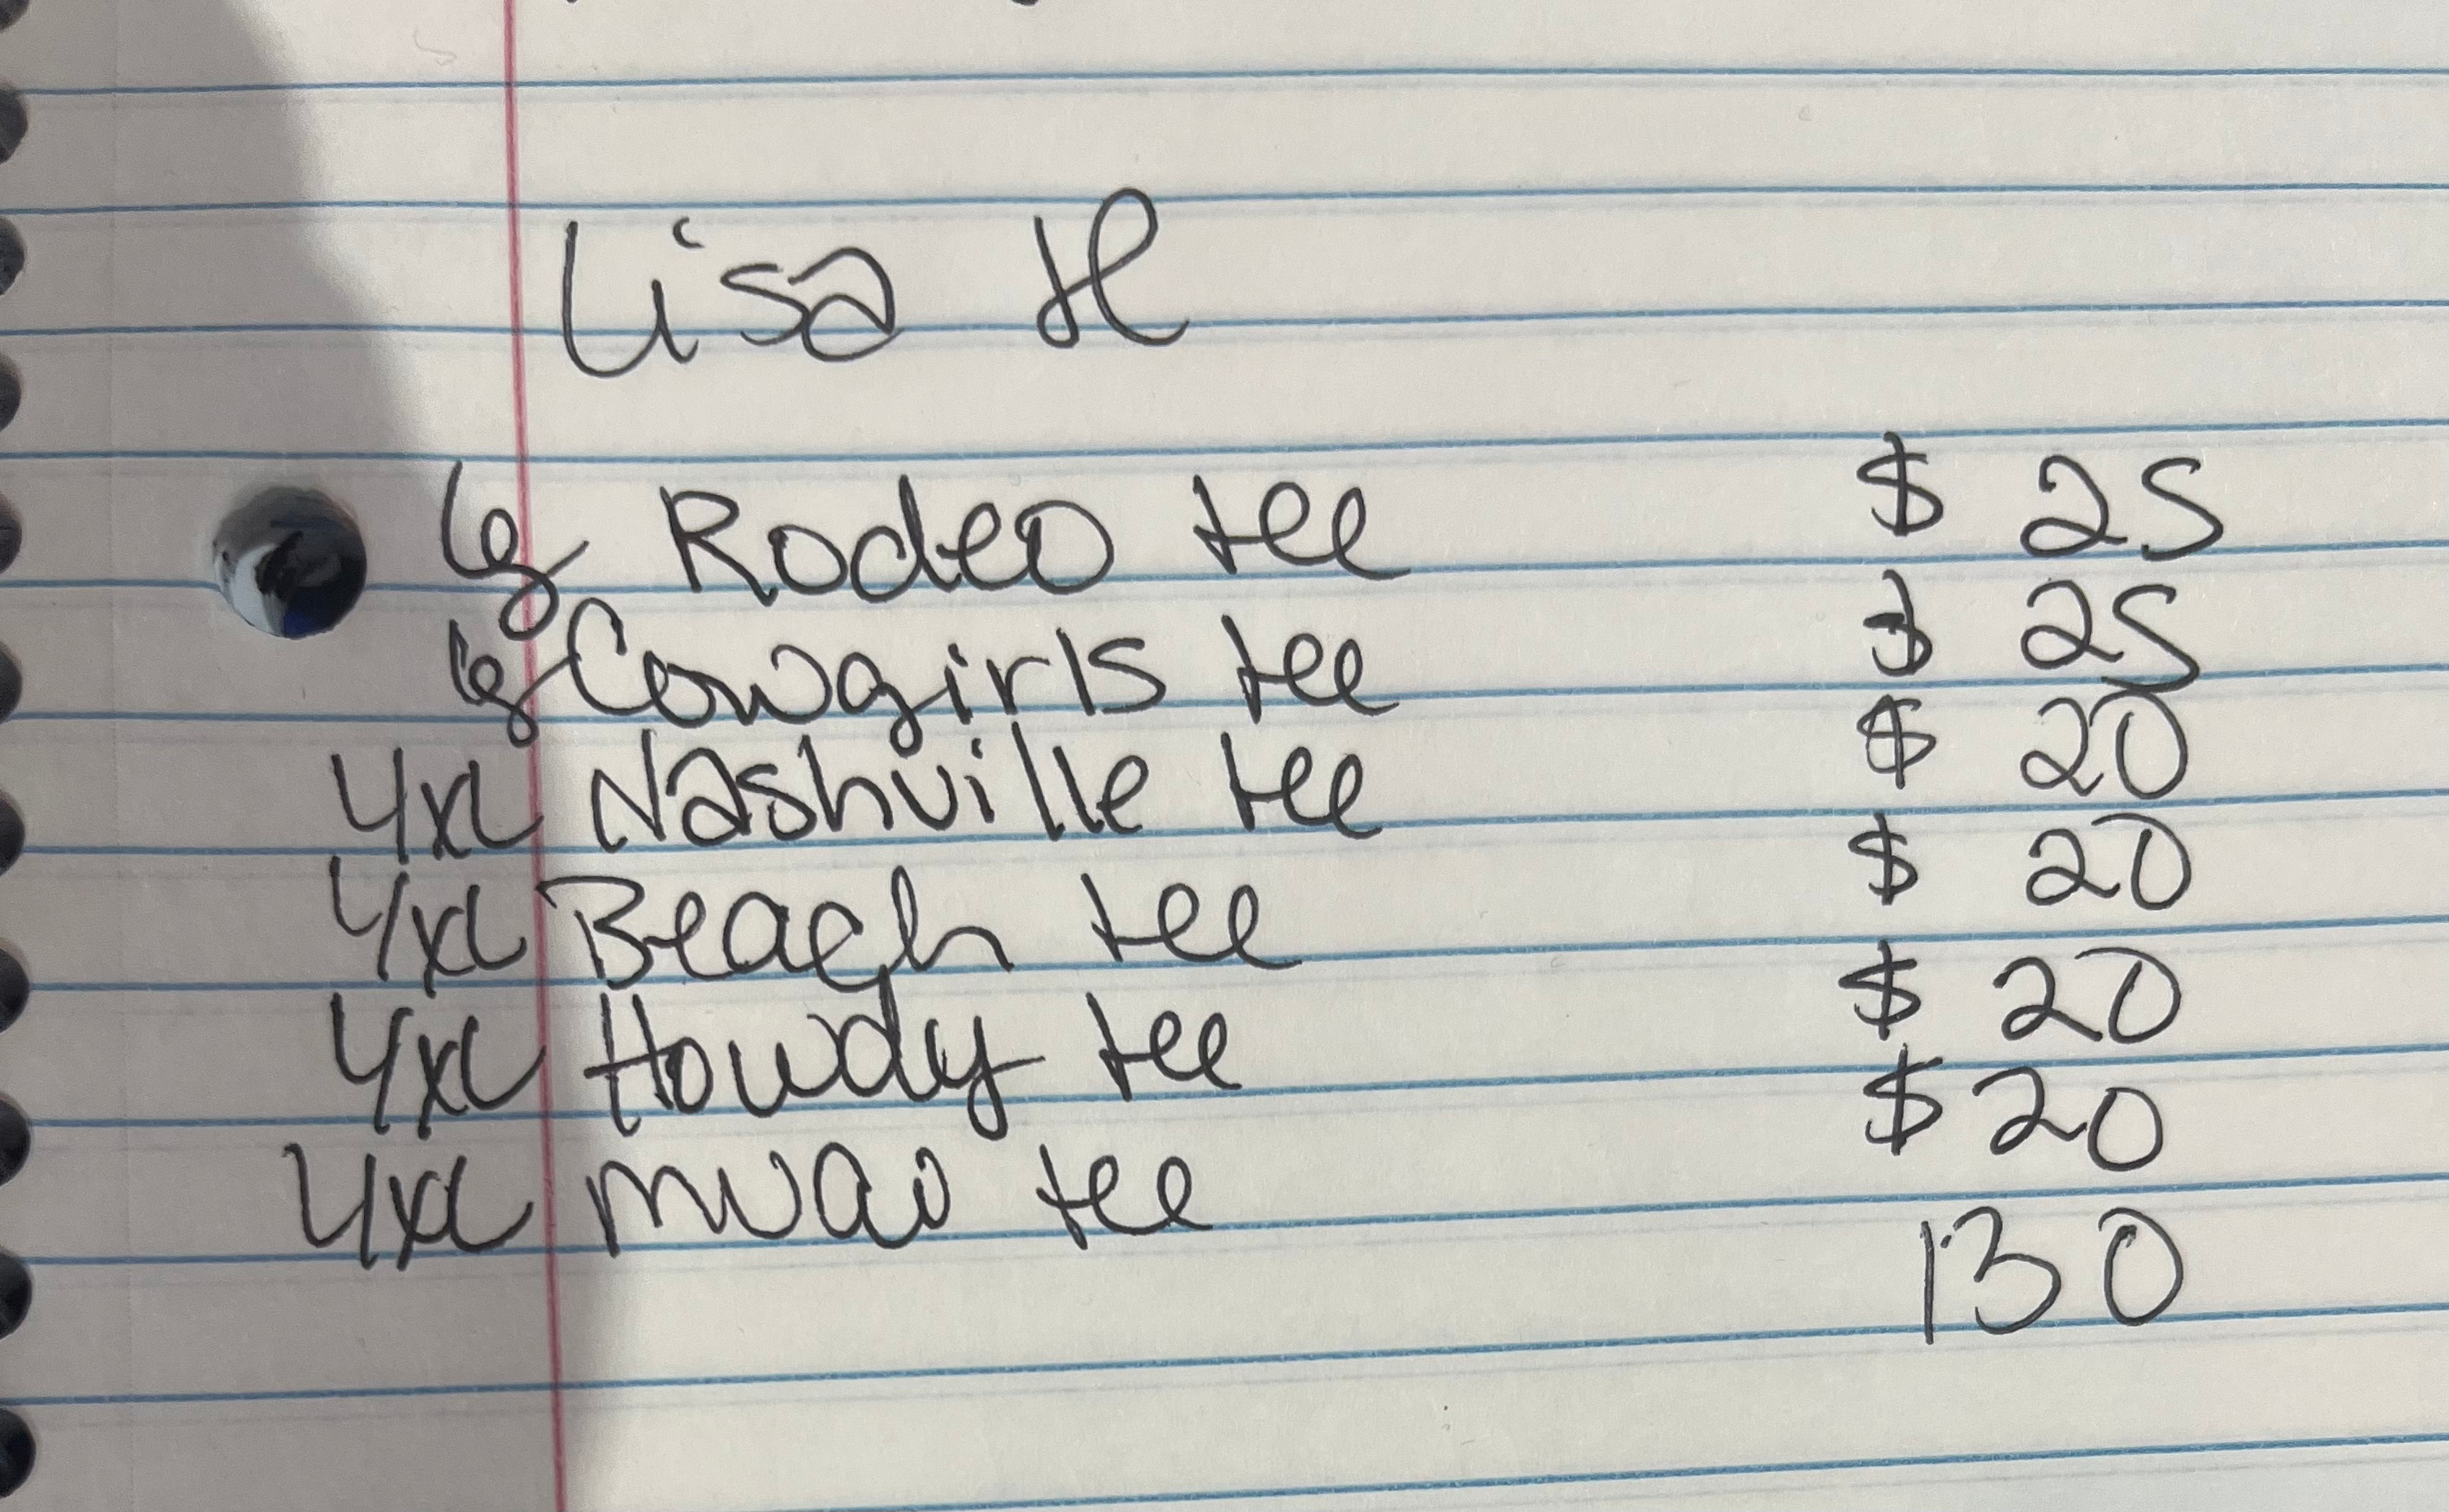 Lisa H
lg Rodeo tee $ 25
lg Cowgirls tee $ 25
4xL Nashville tee $ 20
4xL Beach tee $ 20
4xL Howdy tee $ 20
4xL tee $ 20
130